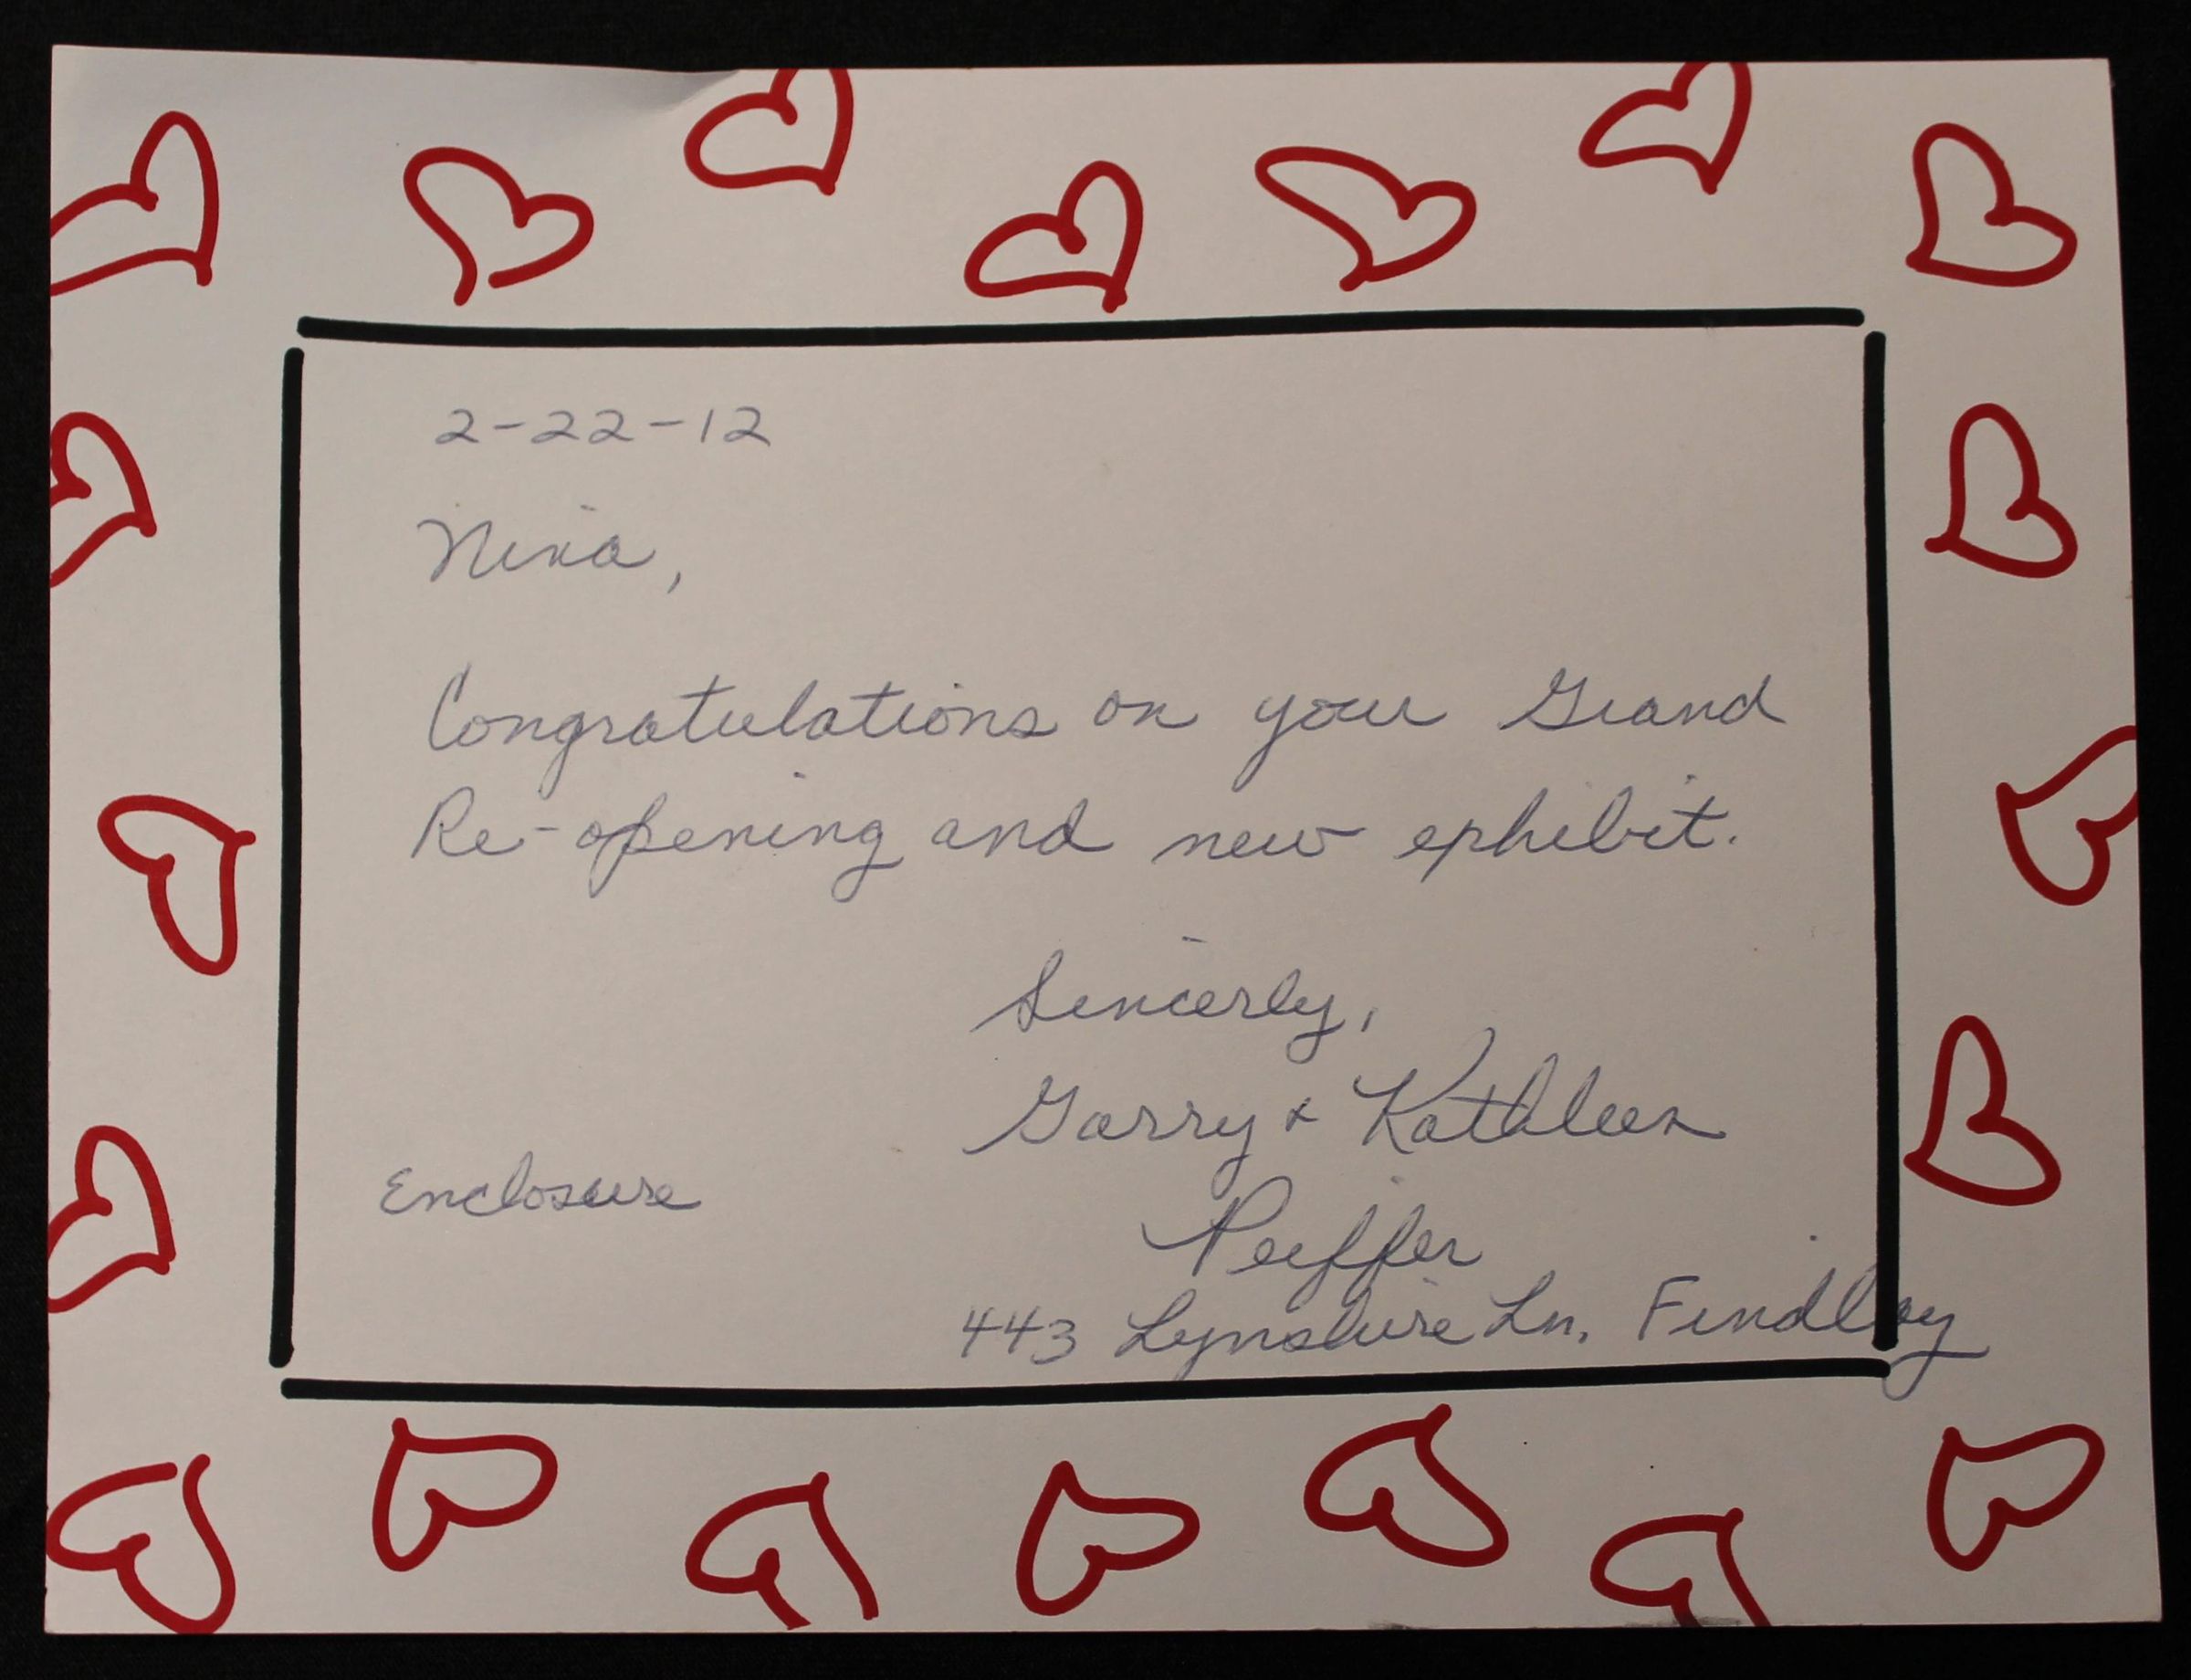 2-22-12
Nina,
Congratulations on your Grand
Re-opening and new exhibit.
Sincerly,
Garry & Kathleen
Enclosure
Peiffer
443 Lynshire Ln. Findlay